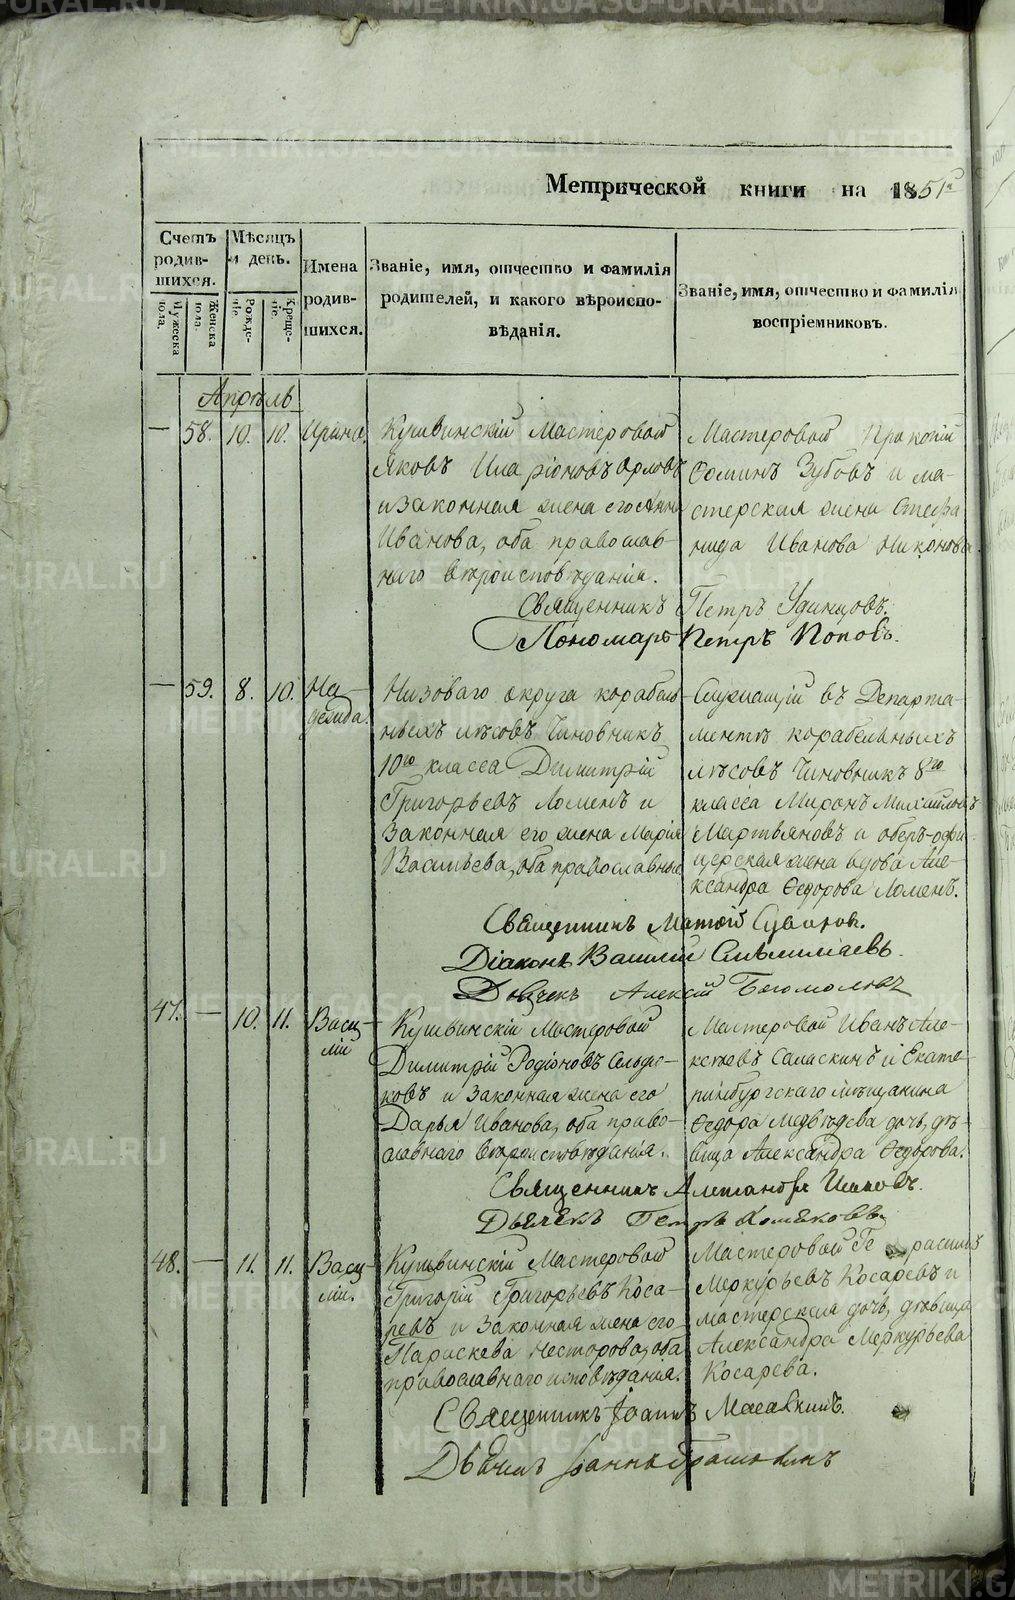 Метрической книги на 1851й
Счетъ родившихся.
Мѣсяцъ и день.
Имена родившихся.
Званіе, имя, отчество и фамилія родителей, и какого вѣроисповѣданія.
Званіе, имя, отчество и фамилія воспріемниковъ.
Мужеска пола.
Женска пола.
Рожденіе.
Крещеніе.
Апрѣль
— 58. 10. 10. Ирина.
Кушвинскій Мастеровой
Яковъ Иларіоновъ Орловъ
и законная жена его Анна
Иванова, оба православ-
наго вѣроисповѣданія.
Мастеровой Прокопій
Фоминъ Зубовъ и ма-
стерская жена Стефа
нида Иванова Никонова.
Священникъ Петръ Удинцовъ.
Пономарь Петръ Поповъ.
— 59. 8. 10. На-
дежда.
Низоваго округа корабель-
ныхъ лѣсовъ Чиновникъ
10го класса Димитрій
Григорьевъ Ломенъ и
законная его жена Марія
Васильева, оба православные
Служащій въ Департа-
ментѣ корабельныхъ
лѣсовъ Чиновникъ 8го
класса Миронъ Михайловъ
Мартьяновъ и оберъ-офи-
церская жена вдова Але-
ксандра Ѳедорова Ломенъ.
Священникъ
Діаконъ Василій
Дьячекъ Алексій Богомоловъ
47. — 10. 11. Васи-
лій
Кушвинскій Мастеровой
Димитрій Родіоновъ Сельдя-
ковъ и законная жена его
Дарья Иванова, оба право-
славнаго вѣроисповѣданія.
Мастеровой Иванъ Але-
ксѣевъ Саласкинъ и Екате-
ринбургскаго мѣщанина
Ѳедора Медвѣдева дочь, дѣ-
вица Александра Ѳедорова.
Священникъ Александръ
Дьячекъ Петръ Хомяковъ.
48. — 11. 11. Васи-
лій.
Кушвинскій Мастеровой
Григорій Григорьевъ Коса-
ревъ и законная жена его
Параскева Несторова, оба
православнаго исповѣданія.
Мастеровой Герасимъ
Меркурьевъ Косаревъ и
мастерская дочь, дѣвица
Александра Меркурьева
Косарева.
Священникъ Іоаннъ
Дьячекъ Іоаннъ
METRIKI.GASO-URAL.RU